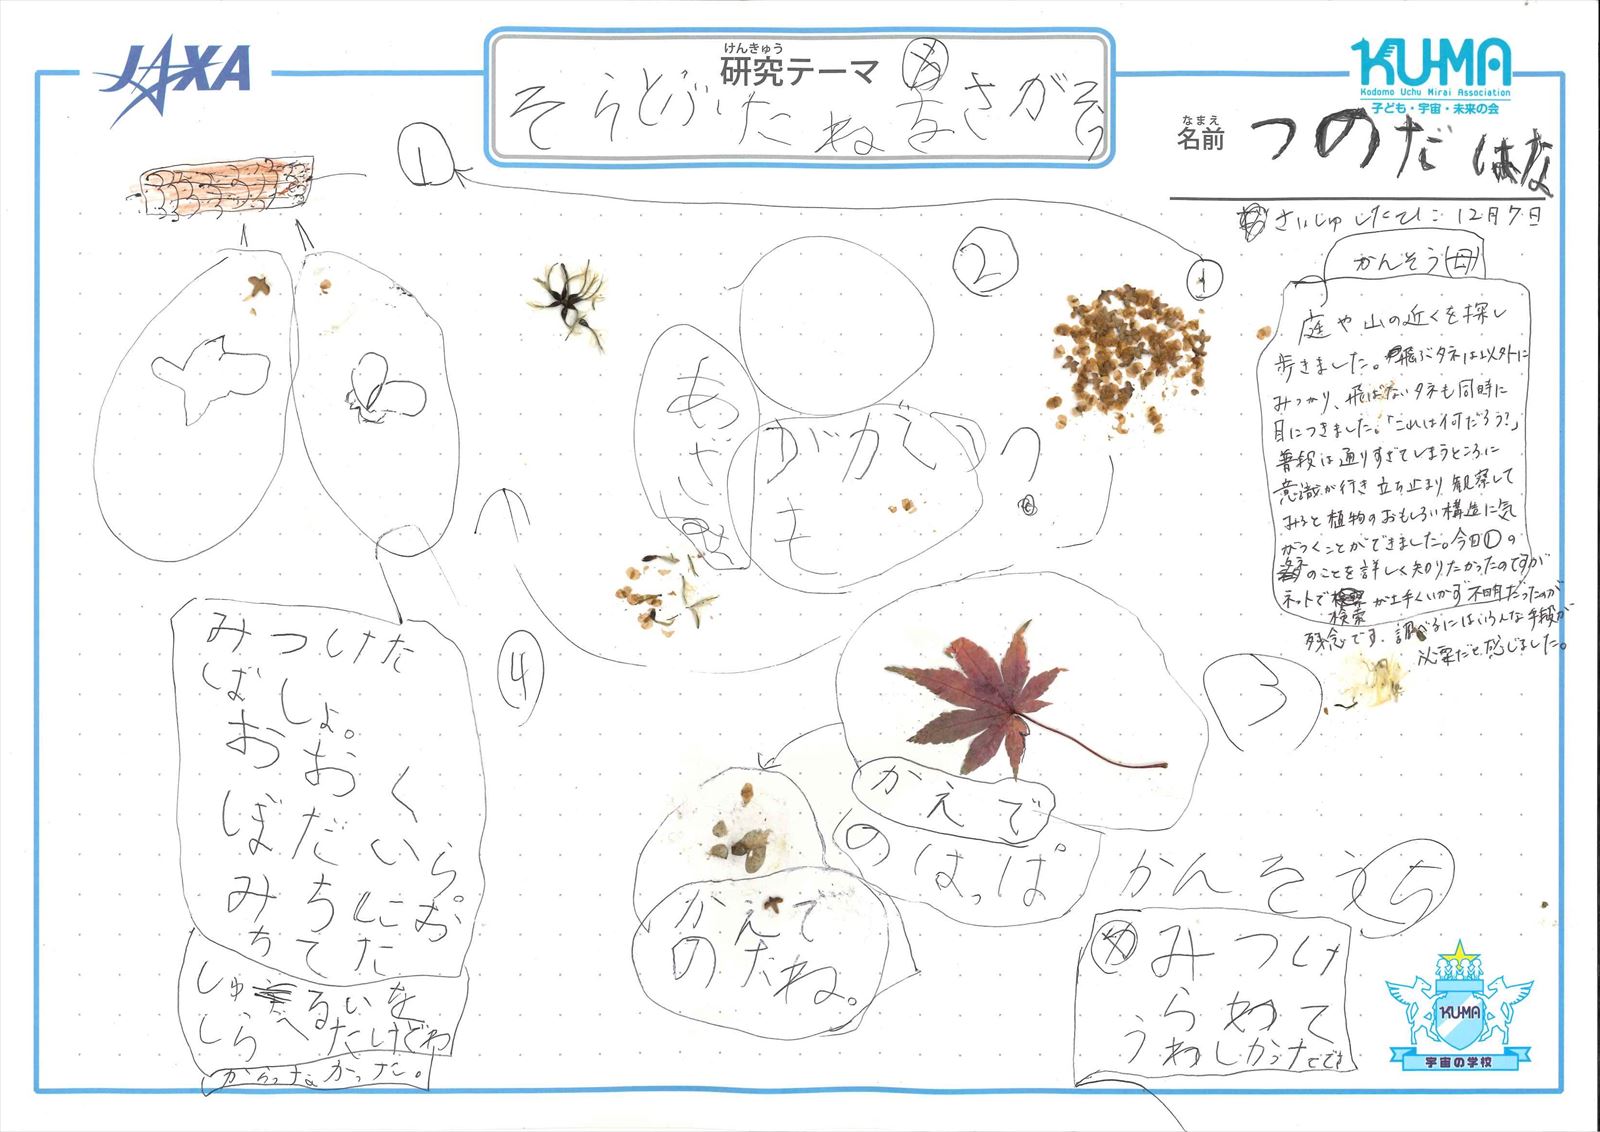 JAXA
けんきゅう
研究テーマ
そらとぶたねをさがそう
KU-MA
Kodomo Uchu Mirai Association
子ども・宇宙・未来の会
なまえ
名前
つのだ はな
さいしゅしたひ:12月7日
①
②
①
かんそう(母)
庭や山の近くを探し
歩きました。飛ぶタネは以外に
みつかり、飛ばないタネも同時に
目につきました。「これは何だろう?」
普段は通りすぎてしまうところに
意識が行き立ち止まり観察して
みると植物のおもしろい構造に気
がつくことができました。今日①の
のことを詳しく知りたかったのですが
ネットで検索が上手くいかず不明だったのが
残念です。調べるにはいろんな手段が
必要だと感じました。
あざみ
がが
も
④
みつけた
ばしょ。
おおく
ぼだいら。
みちにお
ちてた
しゅるいを
しらべたけどわ
からなかった。
③
かえで
のはっぱ
かえで
のたね。
かんそう
みつけ
られて
うれしかったです
KU-MA
宇宙の学校